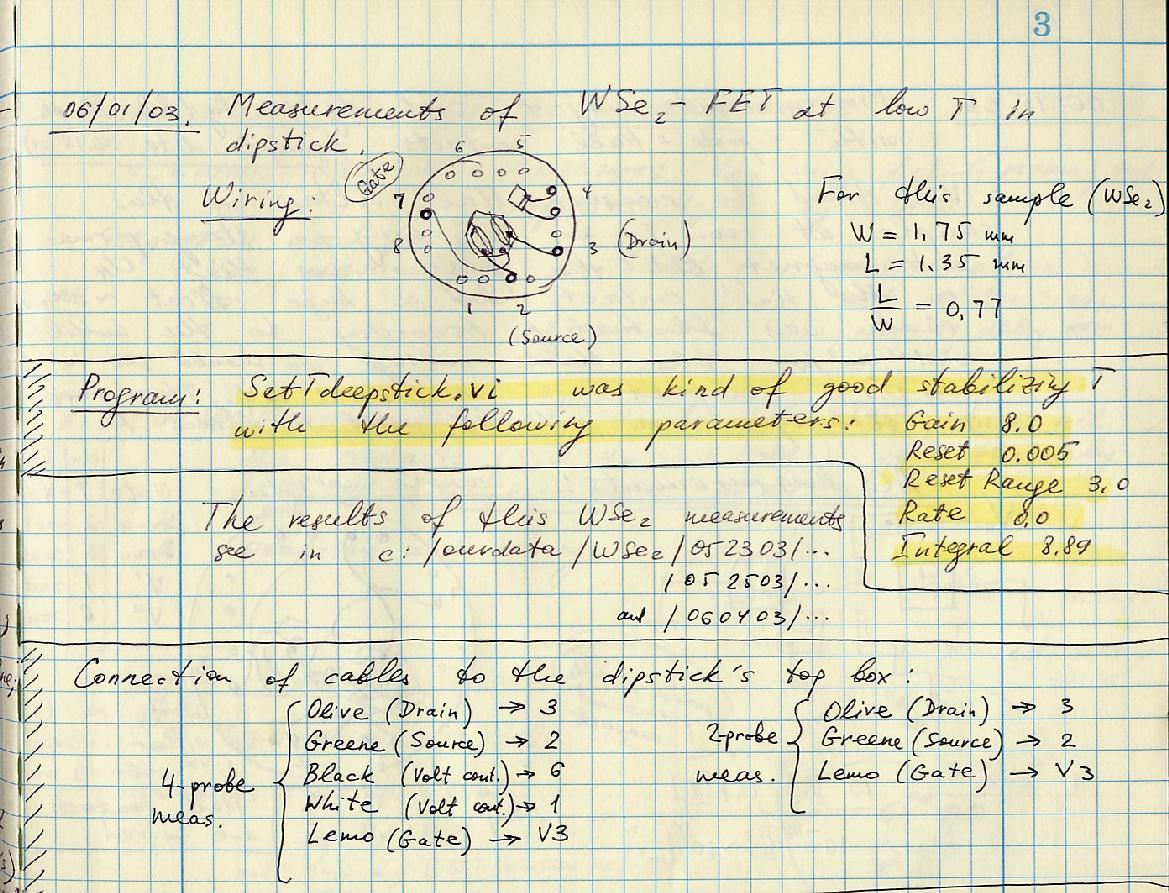 3
06/01/03. Measurements of WSe₂ - FET at low T in
dipstick.
Wiring:
Gate
6 5
7 4
8 3 (Drain)
1 2
(Source)
For this sample (WSe₂)
W = 1,75 mm
L = 1.35 mm
L/W = 0,77
Program: SetTdeepstick.vi was kind of good stabilizing T
with the following parameters:
Gain 8.0
Reset 0.005
Reset Range 3.0
Rate 8.0
Integral 8.89
The results of this WSe₂ measurements
see in c:/ourdata/WSe₂/052303/...
/052503/...
and /060403/...
Connection of cables to the dipstick's top box:
4-probe
meas.
Olive (Drain) → 3
Greene (Source) → 2
Black (Volt cont.) → 6
White (Volt cont.) → 1
Lemo (Gate) → V3
2-probe
meas.
Olive (Drain) → 3
Greene (Source) → 2
Lemo (Gate) → V3